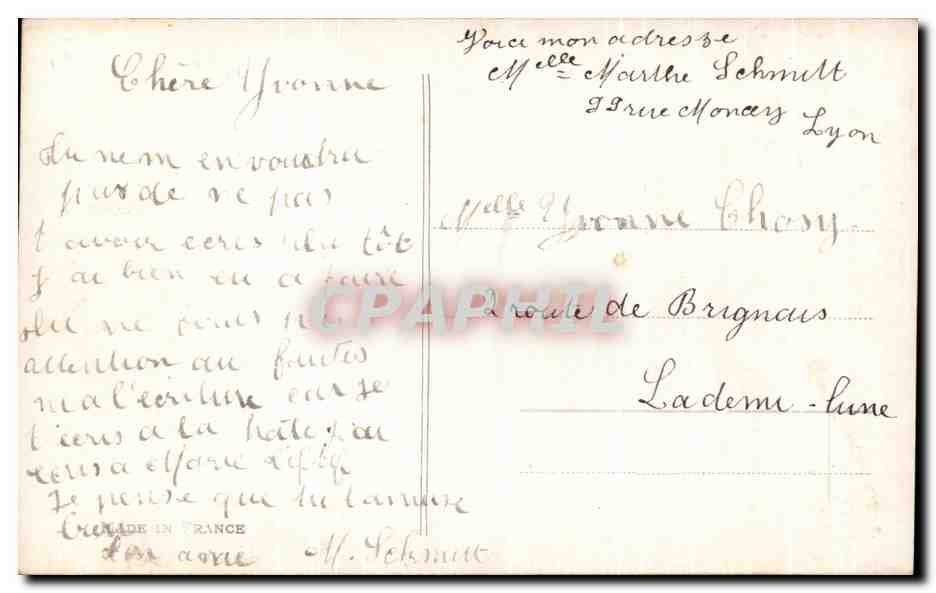 Chère Yvonne
Tu ne m en voudra
pas de ne pas
t avoir ecris plu tôt
j ai bien eu a faire
Tu ne feras pas
attention au fautes
ni a l'ecriture car je
t'ecris a la hâte j'ai
ecris a Marie
Je pense que tu t'amuse
bien
MADE IN FRANCE
Ton amie M. Schmitt
Voici mon adresse
Melle Marthe Schmitt
99 rue Moncey
Lyon
Melle Yvonne Chosy
2 route de Brignais
La demi-lune
CPAPHIL